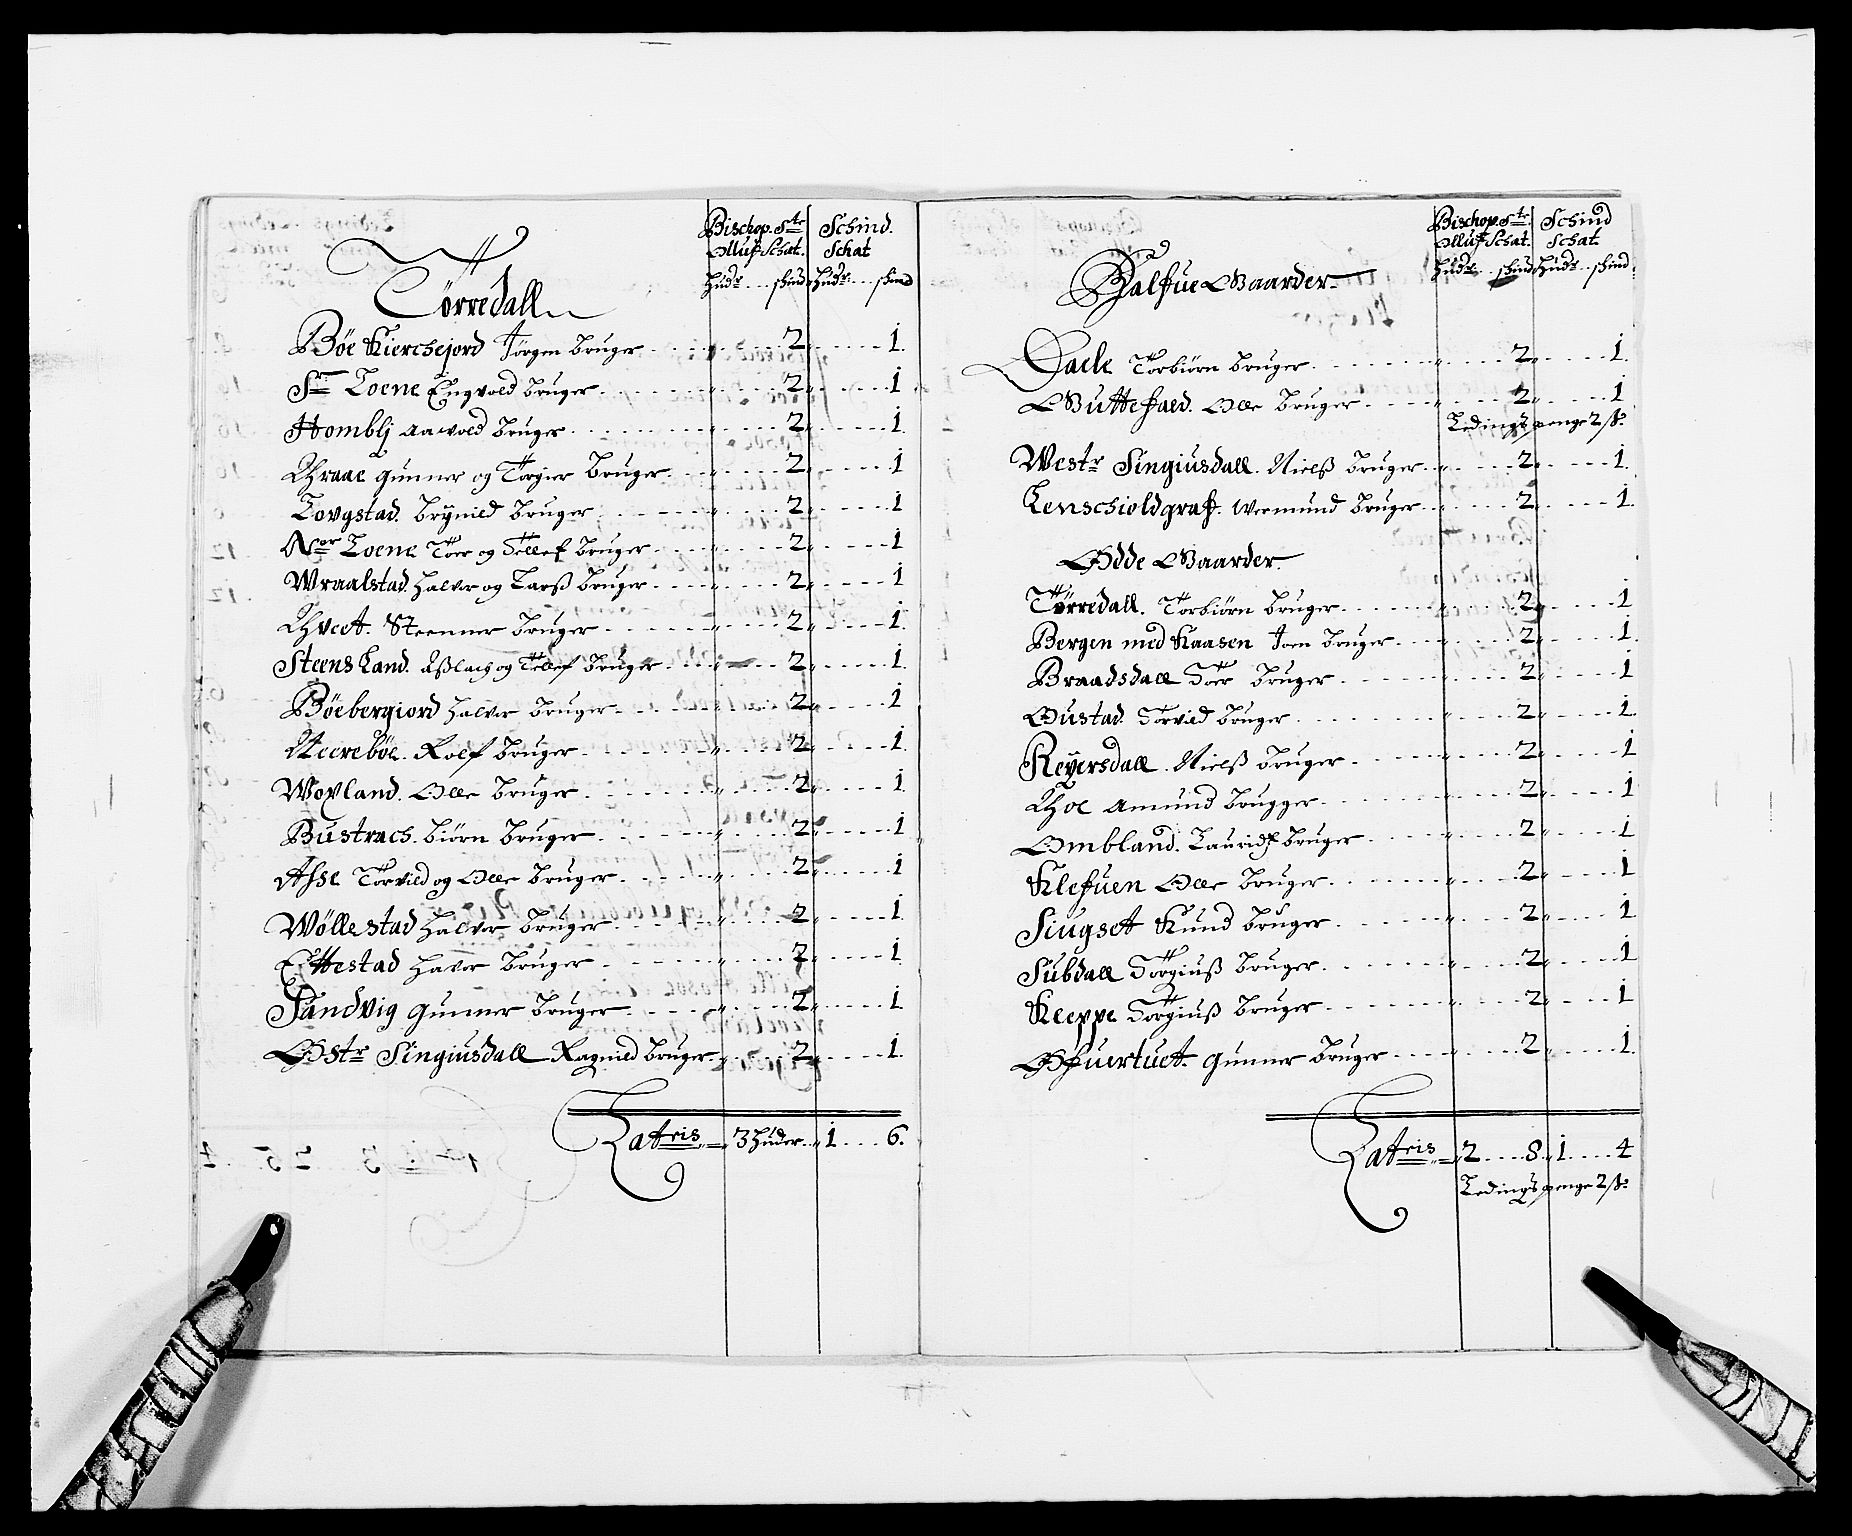 Törredall
Bischop. Ste Schind.
Olluf Schat. Schat
Huder. . . . skind Huder. . . . skind
Böe Kierchejord Jörgen bruger . . . . „ . . . . 2 „ . . . . 1.
Sr Loene Engvold bruger . . . . „ . . . . 2 „ . . . . 1
Hombli Aawold bruger . . . . „ . . . . 2 „ . . . . 1.
Hraae Gunner og Torgier bruger . . „ . . . . 2 „ . . . . 1
Tovgstad. Brynild bruger . . . . „ . . . . 2 „ . . . . 1
Nor Loene Toer og Tellef bruger . . . „ . . . . 2 „ . . . . 1
Wraalstad. Halvor og Larß bruger . . . . „ . . . . 2 „ . . . . 1
Hveet. Steenner bruger . . . . „ . . . . 2 „ . . . . 1
Steens Land. Aßlach og Tellef bruger . . „ . . . . 2 „ . . . . 1.
Böebergiord Halvor bruger . . . . „ . . . . 2 „ . . . . 1
Neereböe. Rolf bruger . . . . „ . . . . 2 „ . . . . 1
Woxland. Olle bruger . . . . „ . . . . 2 „ . . . . 1
Bustraes. Biörn bruger . . . . „ . . . . 2 „ . . . . 1
Asse Torvild og Olle bruger . . . . „ . . . . 2 „ . . . . 1
Wöllestad Halvor bruger . . . . „ . . . . 2 „ . . . . 1
Ettestad Haver bruger . . . . „ . . . . 2 „ . . . . 1
Sandvig Gunner bruger . . . . „ . . . . 2 „ . . . . 1
Ostr Singiusdall Ragnild bruger . . „ . . . . 2 „ . . . . 1.
Lateris „ 3 Huder. . „ 1 . . . . 6.
Halfue Gaarder
Bischop. Ste Schind
Olluf Schat. Schat
Huder. . . skind Huder . . skind
Daele Torbiörn bruger . . . . „ . . . . 2 „ . . . . 1
Guttefald. Olle bruger . . . . „ . . . . 2 „ . . . . 1
Ledings penge 2 ß.
Westr Singiusdall. Nielß bruger . . „ . . . . 2 „ . . . . 1.
Lenschioldgraff. Wermund bruger . . „ . . . . 2 „ . . . . 1
Odde Gaarder
Törredall. Torbiörn bruger . . . . „ . . . . 2 „ . . . . 1
Bergen med Kaasen Joen bruger . . . . „ . . . . 2 „ . . . . 1
Braadsdall Toer bruger . . . . „ . . . . 2 „ . . . . 1
Gustad. Torvild bruger . . . . „ . . . . 2 „ . . . . 1.
Reyersdall. Nielß bruger . . . . „ . . . . 2 „ . . . . 1
Hoe Amund brugger . . . . „ . . . . 2 „ . . . . 1
Ombland. Lauridß bruger . . . . „ . . . . 2 „ . . . . 1
Klefuen Olle bruger . . . . „ . . . . 2 „ . . . . 1
Siugset Knud bruger . . . . „ . . . . 2 „ . . . . 1
Subdall Torgiuß bruger . . . . „ . . . . 2 „ . . . . 1
Kleppe Torgiuß bruger . . . . „ . . . . 2 „ . . . . 1
Ofuertuet. Gunner bruger . . . . „ . . . . 2 „ . . . . 1.
Lateris „ 2 . . . . 8 „ 1 . . . . 4
Ledings penge 2 ß.